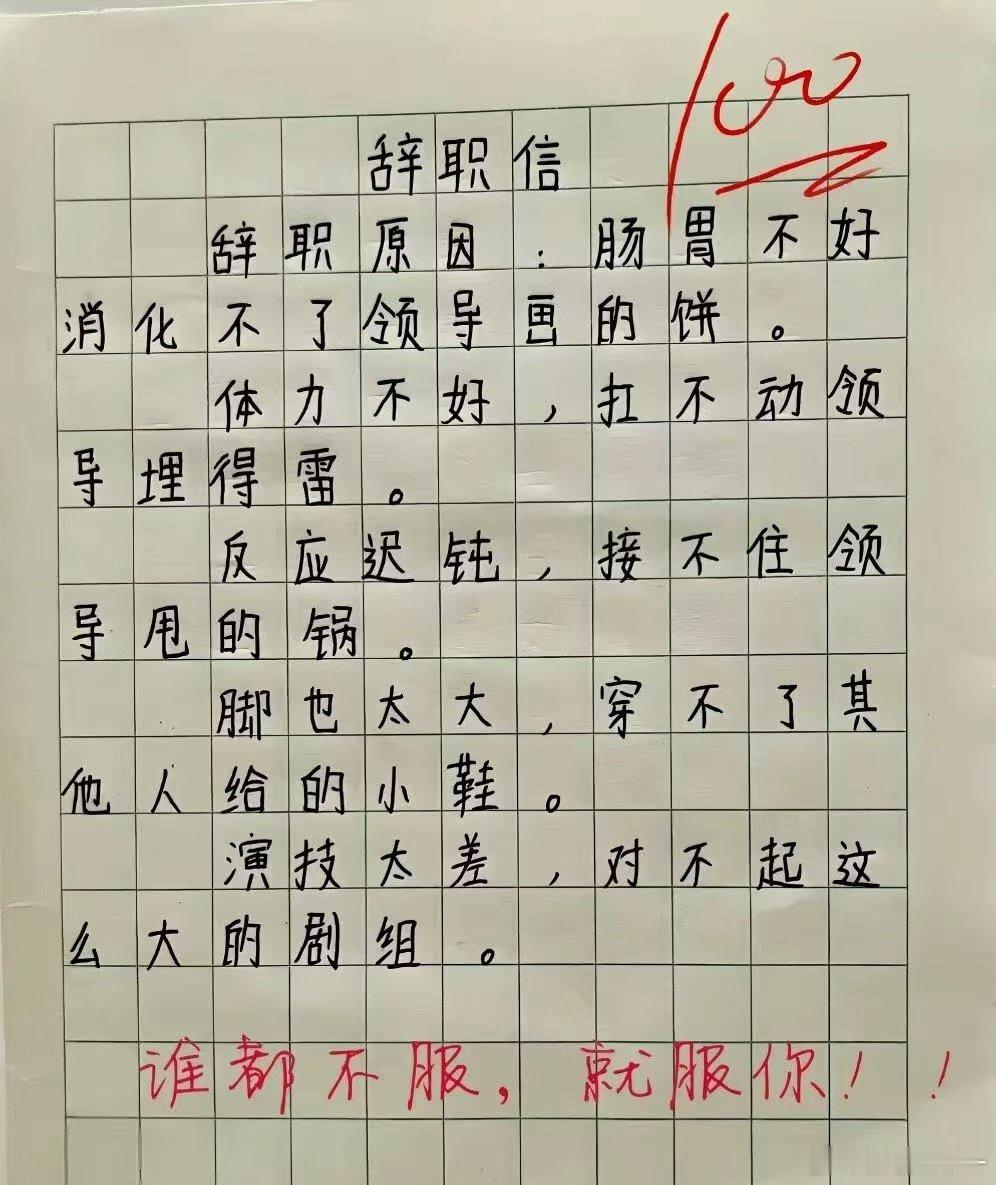 100
辞职信
辞职原因：肠胃不好
消化不了领导画的饼。
体力不好，扛不动领
导埋得雷。
反应迟钝，接不住领
导甩的锅。
脚也太大，穿不了其
他人给的小鞋。
演技太差，对不起这
么大的剧组。
谁都不服，就服你！！